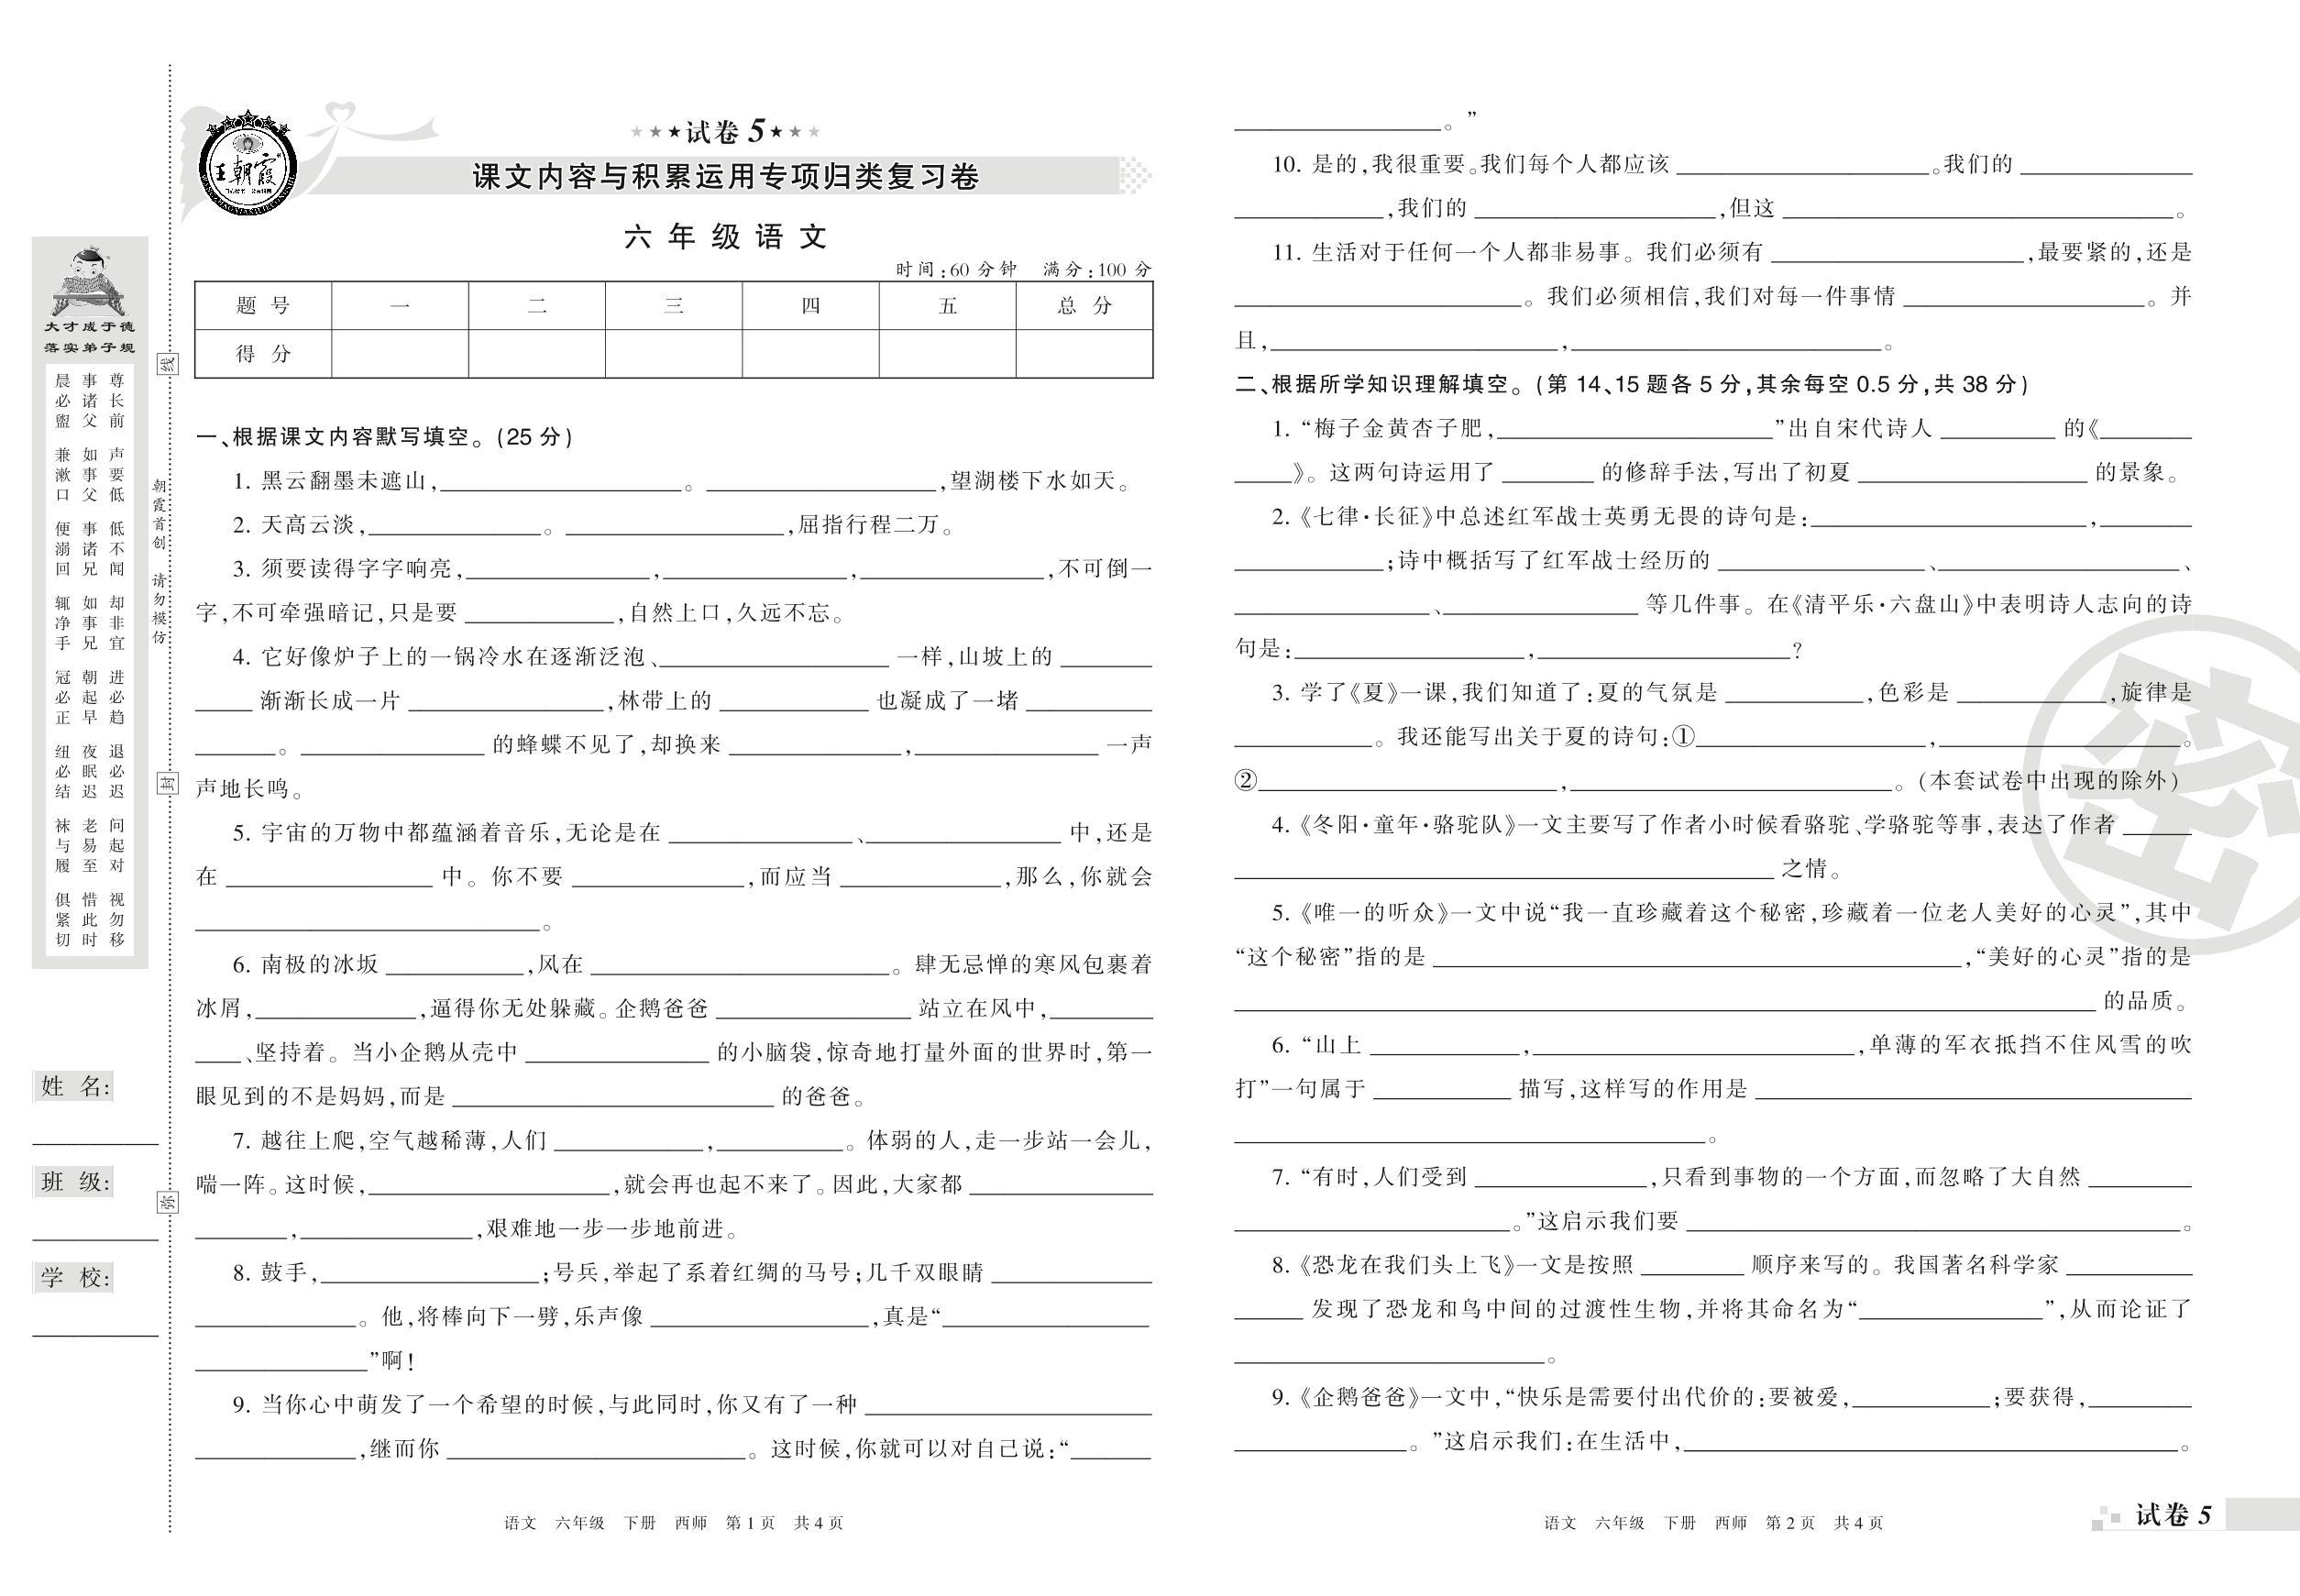 ★★★试卷 5★★★
王朝霞
课文内容与积累运用专项归类复习卷
六 年 级 语 文
时间:60 分钟 满分:100 分
题 号 一 二 三 四 五 总 分
得 分
一、根据课文内容默写填空。(25 分)
1. 黑云翻墨未遮山,________。________,望湖楼下水如天。
2. 天高云淡,________。________,屈指行程二万。
3. 须要读得字字响亮,________,________,________,不可倒一
字,不可牵强暗记,只是要________,自然上口,久远不忘。
4. 它好像炉子上的一锅冷水在逐渐泛泡、________一样,山坡上的________
________渐渐长成一片________,林带上的________也凝成了一堵________
________。________的蜂蝶不见了,却换来________,________一声
声地长鸣。
5. 宇宙的万物中都蕴涵着音乐,无论是在________、________中,还是
在________中。你不要________,而应当________,那么,你就会
________。
6. 南极的冰坂________,风在________。肆无忌惮的寒风包裹着
冰屑,________,逼得你无处躲藏。企鹅爸爸________站立在风中,________
________、坚持着。当小企鹅从壳中________的小脑袋,惊奇地打量外面的世界时,第一
眼见到的不是妈妈,而是________的爸爸。
7. 越往上爬,空气越稀薄,人们________,________。体弱的人,走一步站一会儿,
喘一阵。这时候,________,就会再也起不来了。因此,大家都________
________,________,艰难地一步一步地前进。
8. 鼓手,________;号兵,举起了系着红绸的马号;几千双眼睛________
________。他,将棒向下一劈,乐声像________,真是“________
________”啊!
9. 当你心中萌发了一个希望的时候,与此同时,你又有了一种________
________,继而你________。这时候,你就可以对自己说:“________
语文 六年级 下册 西师 第 1 页 共 4 页
________。”
10. 是的,我很重要。我们每个人都应该________。我们的________
________,我们的________,但这________。
11. 生活对于任何一个人都非易事。我们必须有________,最要紧的,还是
________。我们必须相信,我们对每一件事情________。并
且,________,________。
二、根据所学知识理解填空。(第 14、15 题各 5 分,其余每空 0.5 分,共 38 分)
1. “梅子金黄杏子肥,________”出自宋代诗人________的《________
________》。这两句诗运用了________的修辞手法,写出了初夏________的景象。
2.《七律·长征》中总述红军战士英勇无畏的诗句是:________,________
________;诗中概括写了红军战士经历的________、________、
________、________等几件事。在《清平乐·六盘山》中表明诗人志向的诗
句是:________,________?
3. 学了《夏》一课,我们知道了:夏的气氛是________,色彩是________,旋律是
________。我还能写出关于夏的诗句:①________,________。
②________,________。(本套试卷中出现的除外)
4.《冬阳·童年·骆驼队》一文主要写了作者小时候看骆驼、学骆驼等事,表达了作者________
________之情。
5.《唯一的听众》一文中说“我一直珍藏着这个秘密,珍藏着一位老人美好的心灵”,其中
“这个秘密”指的是________,“美好的心灵”指的是
________的品质。
6. “山上________,________,单薄的军衣抵挡不住风雪的吹
打”一句属于________描写,这样写的作用是________
________。
7. “有时,人们受到________,只看到事物的一个方面,而忽略了大自然________
________。”这启示我们要________。
8.《恐龙在我们头上飞》一文是按照________顺序来写的。我国著名科学家________
________发现了恐龙和鸟中间的过渡性生物,并将其命名为“________”,从而论证了
________。
9.《企鹅爸爸》一文中,“快乐是需要付出代价的:要被爱,________;要获得,________
________。”这启示我们:在生活中,________。
语文 六年级 下册 西师 第 2 页 共 4 页
试卷 5
密
大才成于德
落实弟子规
晨必盥 兼漱口 便溺回 辄净手 冠必正 纽必结 袜与履 俱紧切
事诸父 如事父 事诸兄 如事兄 朝起早 夜眠迟 老易至 惜此时
尊长前 声要低 低不闻 却非宜 进必趋 退必迟 问起对 视勿移
姓 名:
班 级:
学 校:
朝霞首创 请勿模仿
线
封
弥